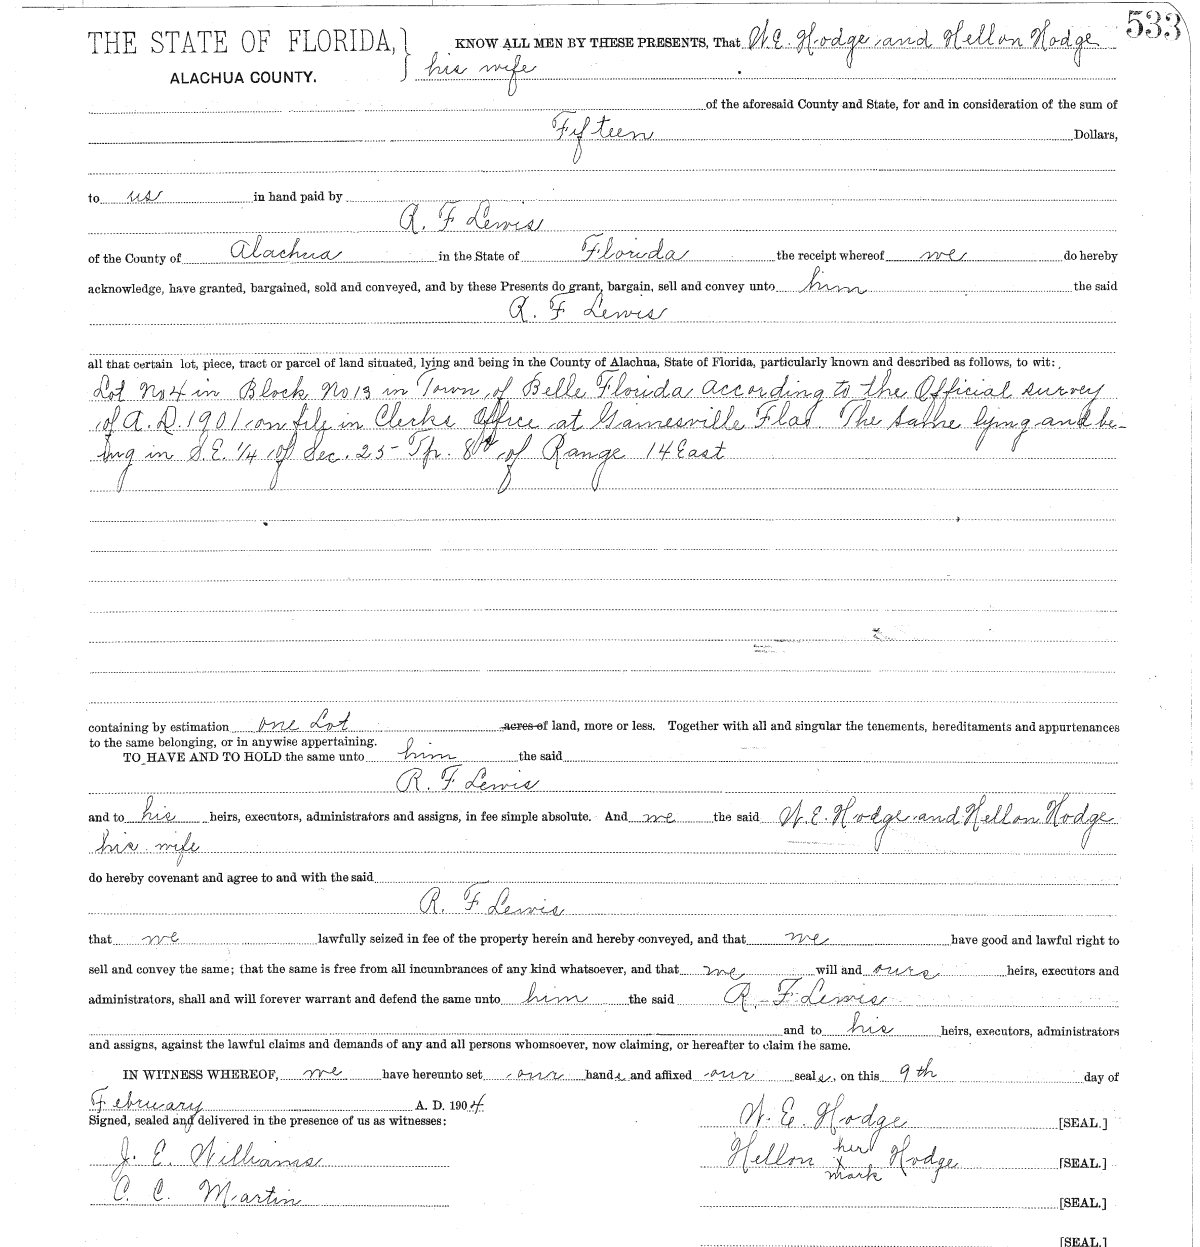 533
THE STATE OF FLORIDA, } KNOW ALL MEN BY THESE PRESENTS, That W. E. Hodge and Hellon Hodge
ALACHUA COUNTY. his wife
of the aforesaid County and State, for and in consideration of the sum of
Fifteen Dollars,
to us in hand paid by
R. F Lewis
of the County of Alachua in the State of Florida the receipt whereof we do hereby
acknowledge, have granted, bargained, sold and conveyed, and by these Presents do grant, bargain, sell and convey unto him the said
R. F Lewis
all that certain lot, piece, tract or parcel of land situated, lying and being in the County of Alachua, State of Florida, particularly known and described as follows, to wit:
Lot No 4 in Block No 13 in Town of Belle Florida according to the Official survey
of A. D. 1901 on file in Clerks Office at Gainesville Flad. The same lying and be-
ing in S.E. 1/4 of Sec. 25 - Tp. 8 of Range 14 East
containing by estimation one Lot acres of land, more or less. Together with all and singular the tenements, hereditaments and appurtenances
to the same belonging, or in anywise appertaining.
TO HAVE AND TO HOLD the same unto him the said
R. F Lewis
and to his heirs, executors, administrators and assigns, in fee simple absolute. And we the said W. E. Hodge and Hellon Hodge
his wife
do hereby covenant and agree to and with the said
R. F Lewis
that we lawfully seized in fee of the property herein and hereby conveyed, and that we have good and lawful right to
sell and convey the same; that the same is free from all incumbrances of any kind whatsoever, and that we will and ours heirs, executors and
administrators, shall and will forever warrant and defend the same unto him the said R. F Lewis
and to his heirs, executors, administrators
and assigns, against the lawful claims and demands of any and all persons whomsoever, now claiming, or hereafter to claim the same.
IN WITNESS WHEREOF, we have hereunto set our hands and affixed our seals, on this 9th day of
February A. D. 1904
Signed, sealed and delivered in the presence of us as witnesses:
W. E. Hodge [SEAL.]
J. E. Williams
Hellon her x mark Hodge [SEAL.]
C. C. Martin
[SEAL.]
[SEAL.]